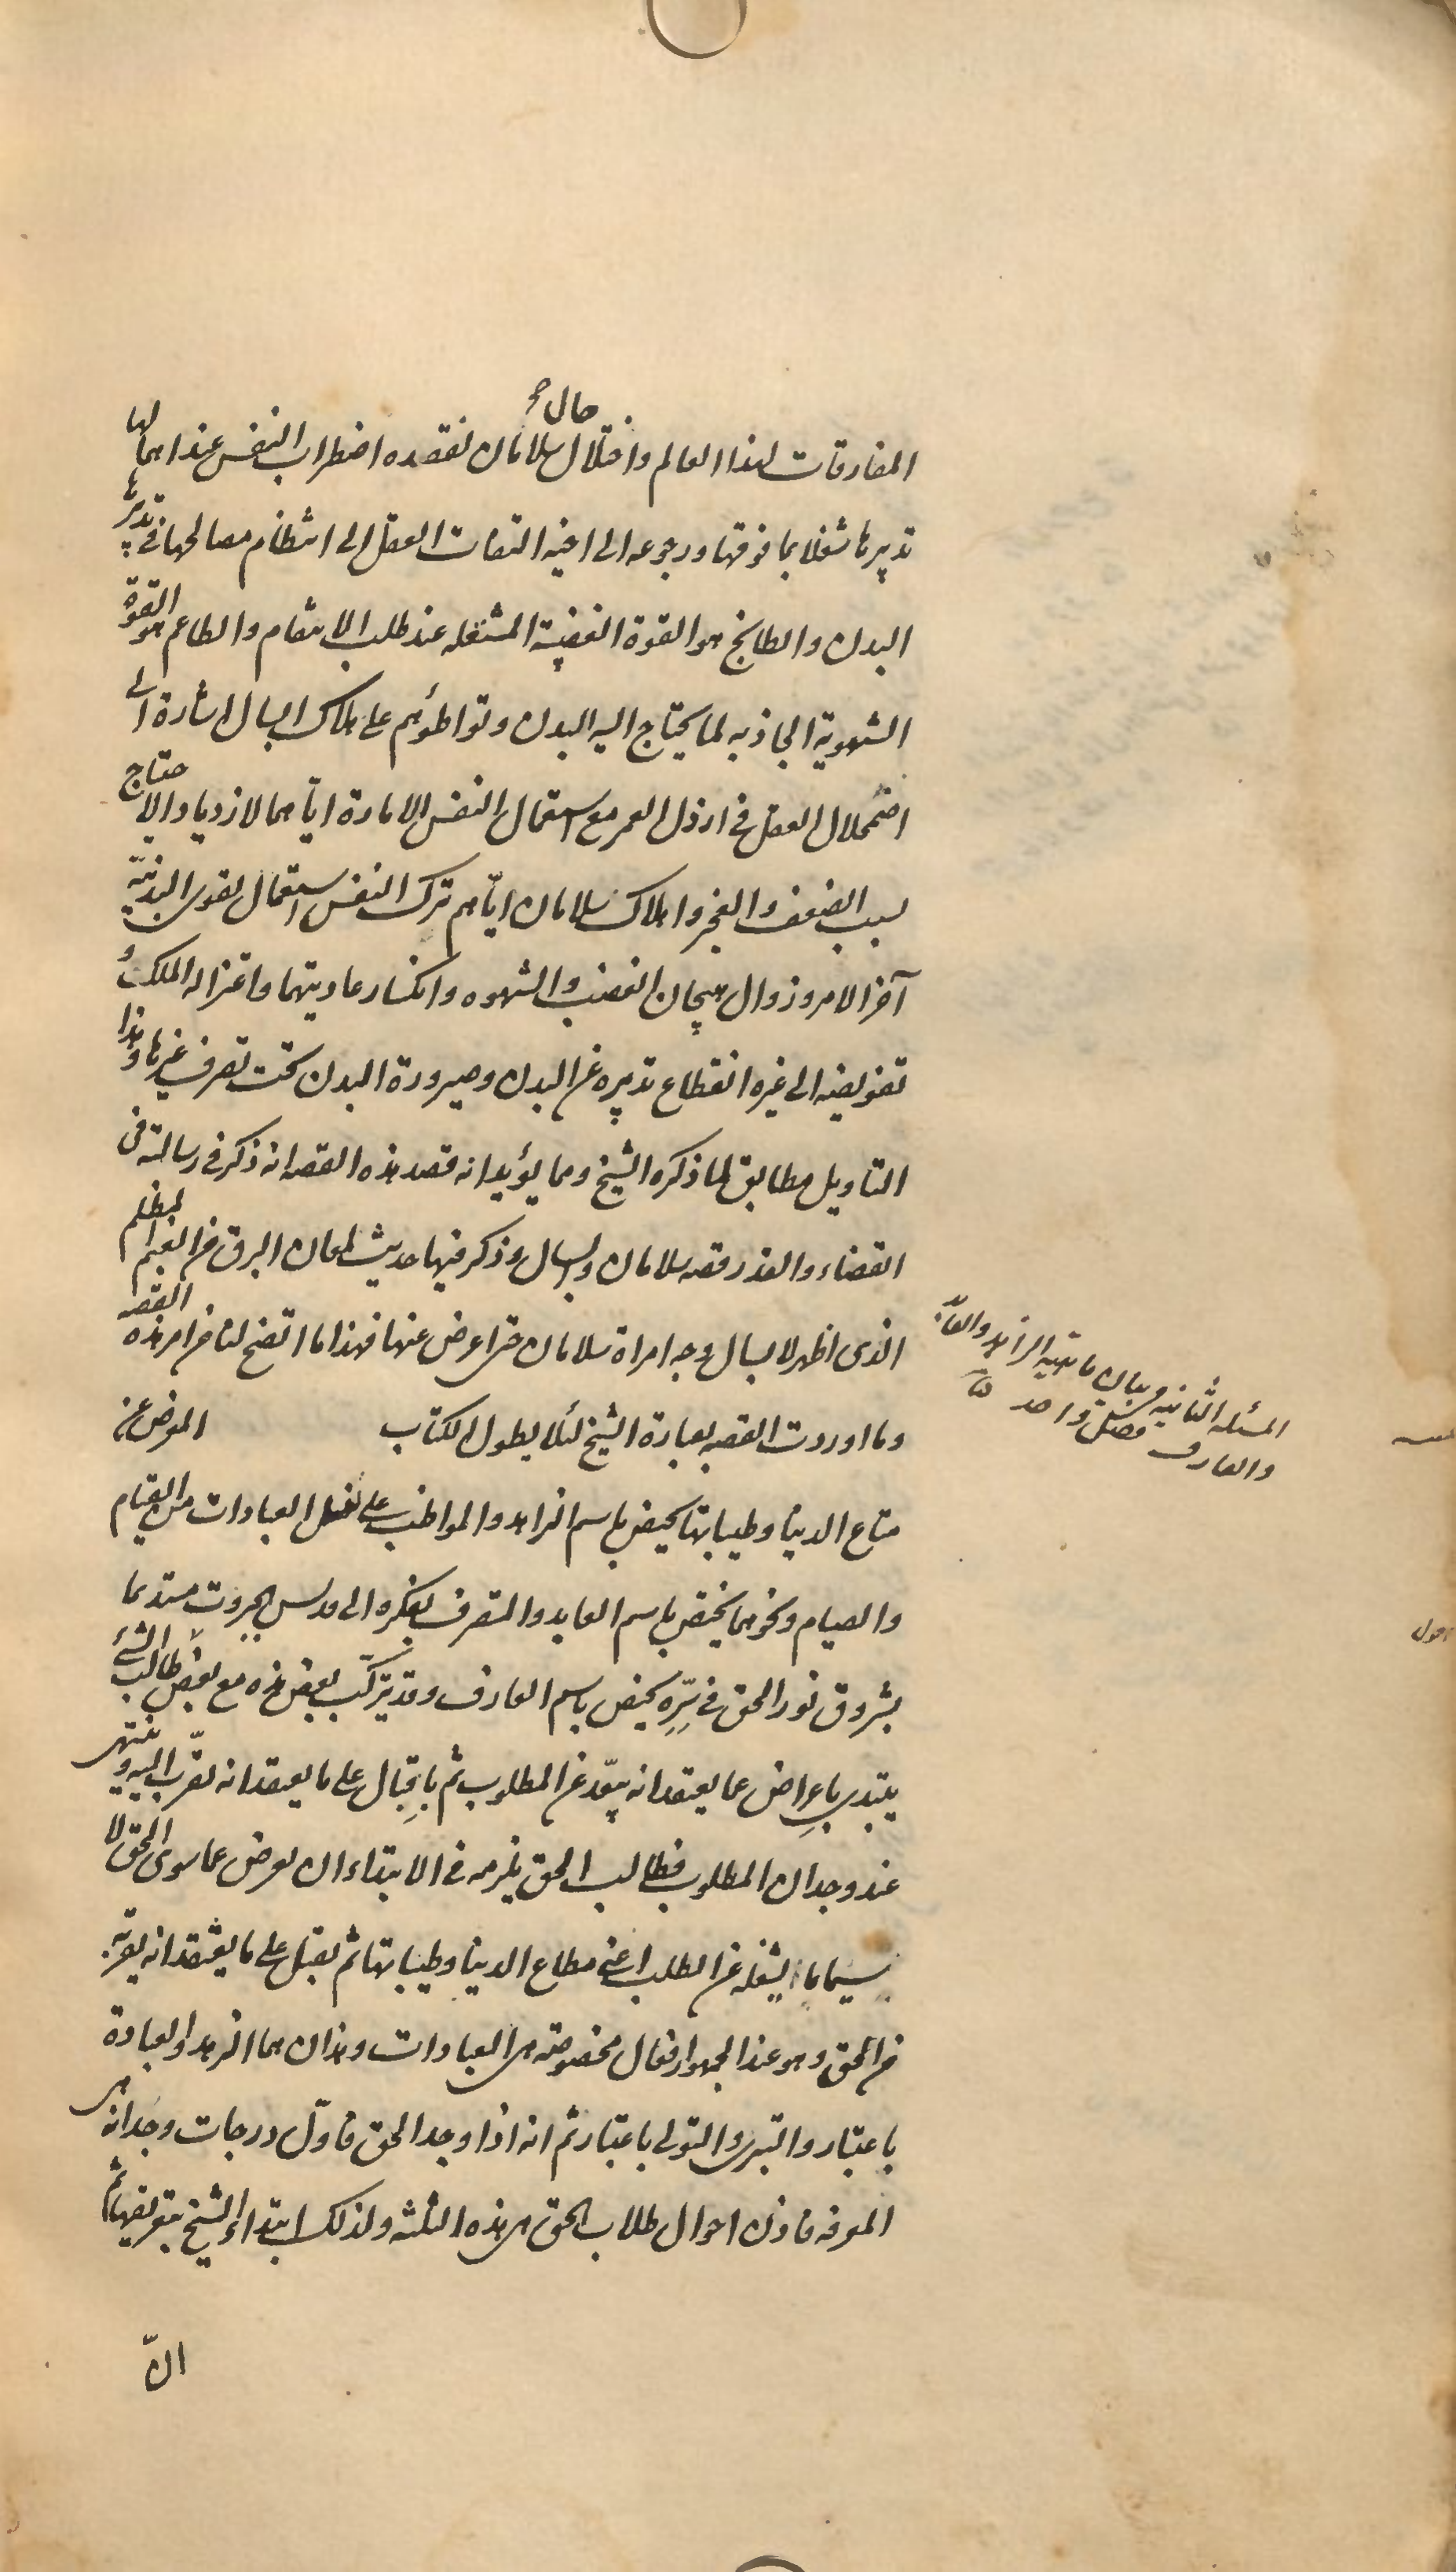 حال صح
المفارقات لهذا العالم واختلال سلامان لفقده اضطراب النفس عند اهمالها
تدبيرها شغلا بما فوقها ورجوعه الى اخيه التفات العقل الى انتظام مصالحها فى تدبيرها
البدن والطابخ هو القوة الغضبية المشتعله عند طلب الانتقام والطاعم هو القوة
الشهوية الجاذبه لما يحتاج اليه البدن وتواطؤهم على هلاك ابسال اشارة الى
اضمحلال العقل فى ارذل العمر مع استعمال النفس الامارة اياهما لازدياد الاحتياج
بسبب الضعف والعجز واهلاك سلامان اياهم ترك النفس استعمال القوى البدنيّة
آخر الامر وزوال هيجان الغضب والشهوه وانكسار عاديتهما واعتزاله الملك و
تفويضه الى غيره انقطاع تدبيره عن البدن وصيرورة البدن تحت تصرف غيرها وهذا
التاويل مطابق لما ذكره الشيخ ومما يؤيد انه قصد هذه القصه انه ذكر فى رسالته فى
القضاء والقدر قصه سلامان وابسال وذكر فيها حديث لمعان البرق من الغيم المظلم
الذى اظهر لابسال وجه امراة سلامان حتى اعرض عنها فهذا ما اتضح لنا من امر هذه القصه
وما اوردت القصه بعبارة الشيخ لئلا يطول الكتاب المعرض عن
المسئله الثانيه فى بيان ماهيه الزاهد والعابد
والعارف فصل واحد
متاع الدنيا وطيباتها يخص باسم الزاهد والمواظب على نفل العبادات من القيام
والصيام ونحوهما يختص باسم العابد والمتصرف بفكره الى قدس الجبروت مستديما
بشروق نور الحق فى سِرِّهِ يخص باسم العارف وقد يتركّب بعض هذه مع بعض طالب الشئ
يبتدى باِعراض عما يعتقد انه يبعّد عن المطلوب ثم باِقبال على ما يعتقد انه يقرّب اليه وينتهى
عند وجدان المطلوب فطالب الحق يلزمه فى الابتداء ان يعرض عما سوى الحق لا
سيما ما يشغله عن الطلب اعنى مطاع الدنيا وطيباتها ثم يقبل على ما يعتقد انه يقربه
من الحق وهو عند الجمهور افعال مخصوصة هى العبادات وهذان هما الزهد والعبادة
باعتبار والتبرى والتولى باعتبار ثم انه اذا وجد الحق فاوّل درجات وجدانه هى
المعرفه فاذن احوال طلاب الحق هى هذه الثلثه ولذلك ابتداء الشيخ بتعريفها ثم
انّ